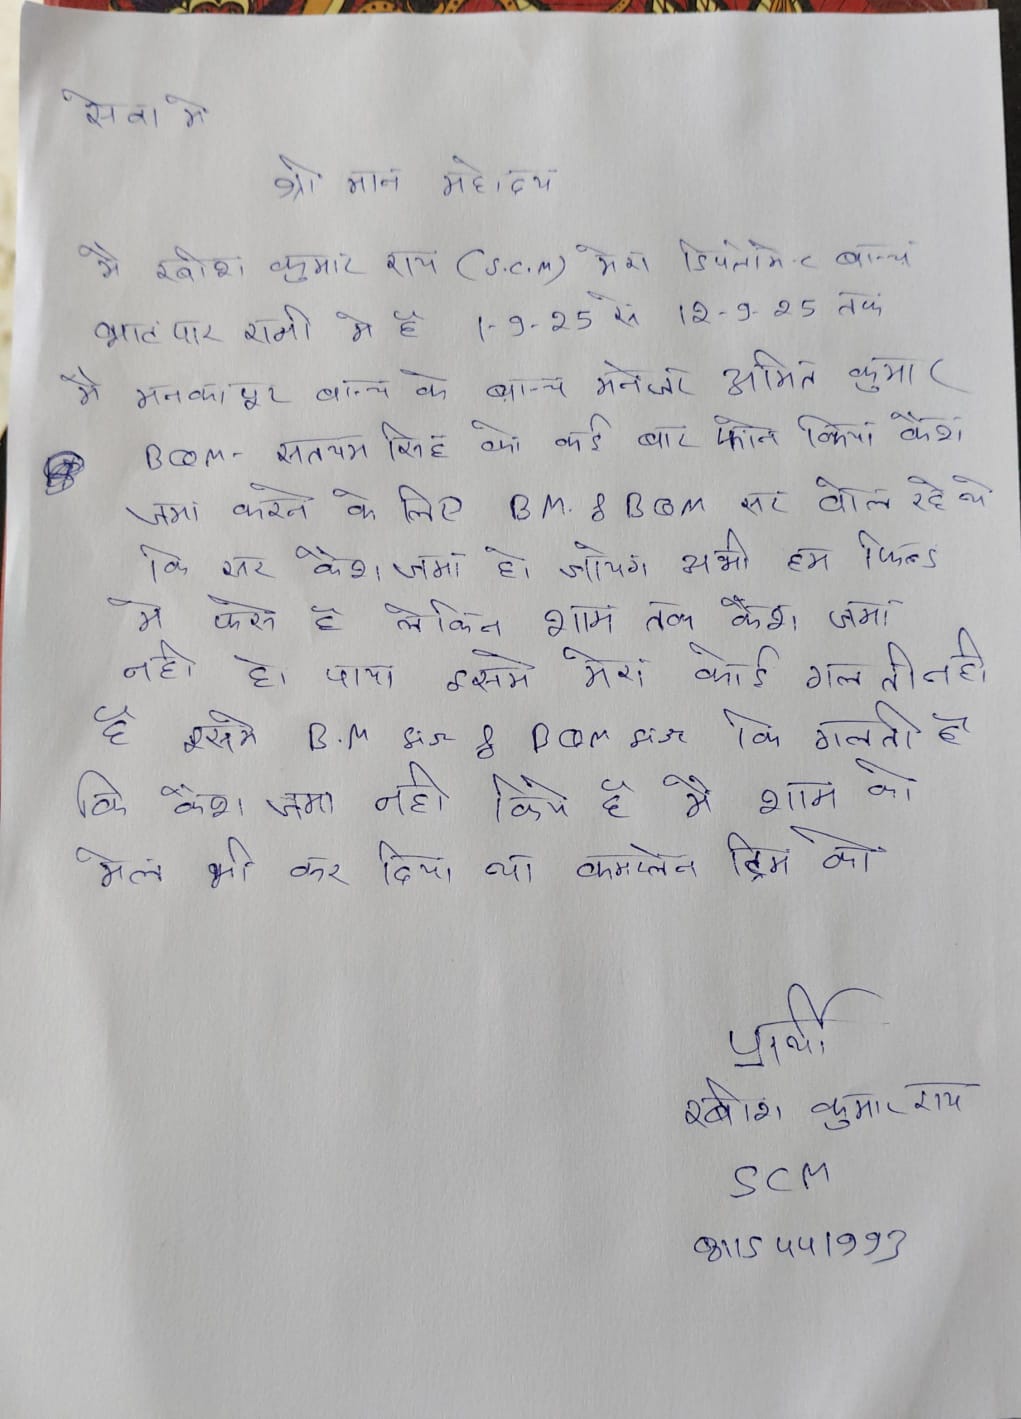 सेवा मे
श्री मान महोदय
मै कुमार राय (S.C.M) मेरा डिपलोमेन्ट ब्रान्च
भाटपार रानी मे है 1-9-25 से 12-9-25 तक
मै मनकापूर ब्रान्च के ब्रान्च मनेजर अमित कुमार
BQM- सतयम सिंह को कई बार फोन किया कैश
जमा करने के लिए BM. & BQM सर बोल रहे थे
कि सर कैश जमा हो जायेगा अभी हम फिल्ड
मे फसे है लेकिन शाम तक कैश जमा
नही हो पाया इसमे मेरा कोई गलती नही
है इसमे B.M & BQM कि गलती है
कि कैश जमा नही किये है मै शाम को
मेल भी कर दिया था कमप्लेन को
प्रार्थी
कुमार राय
SCM